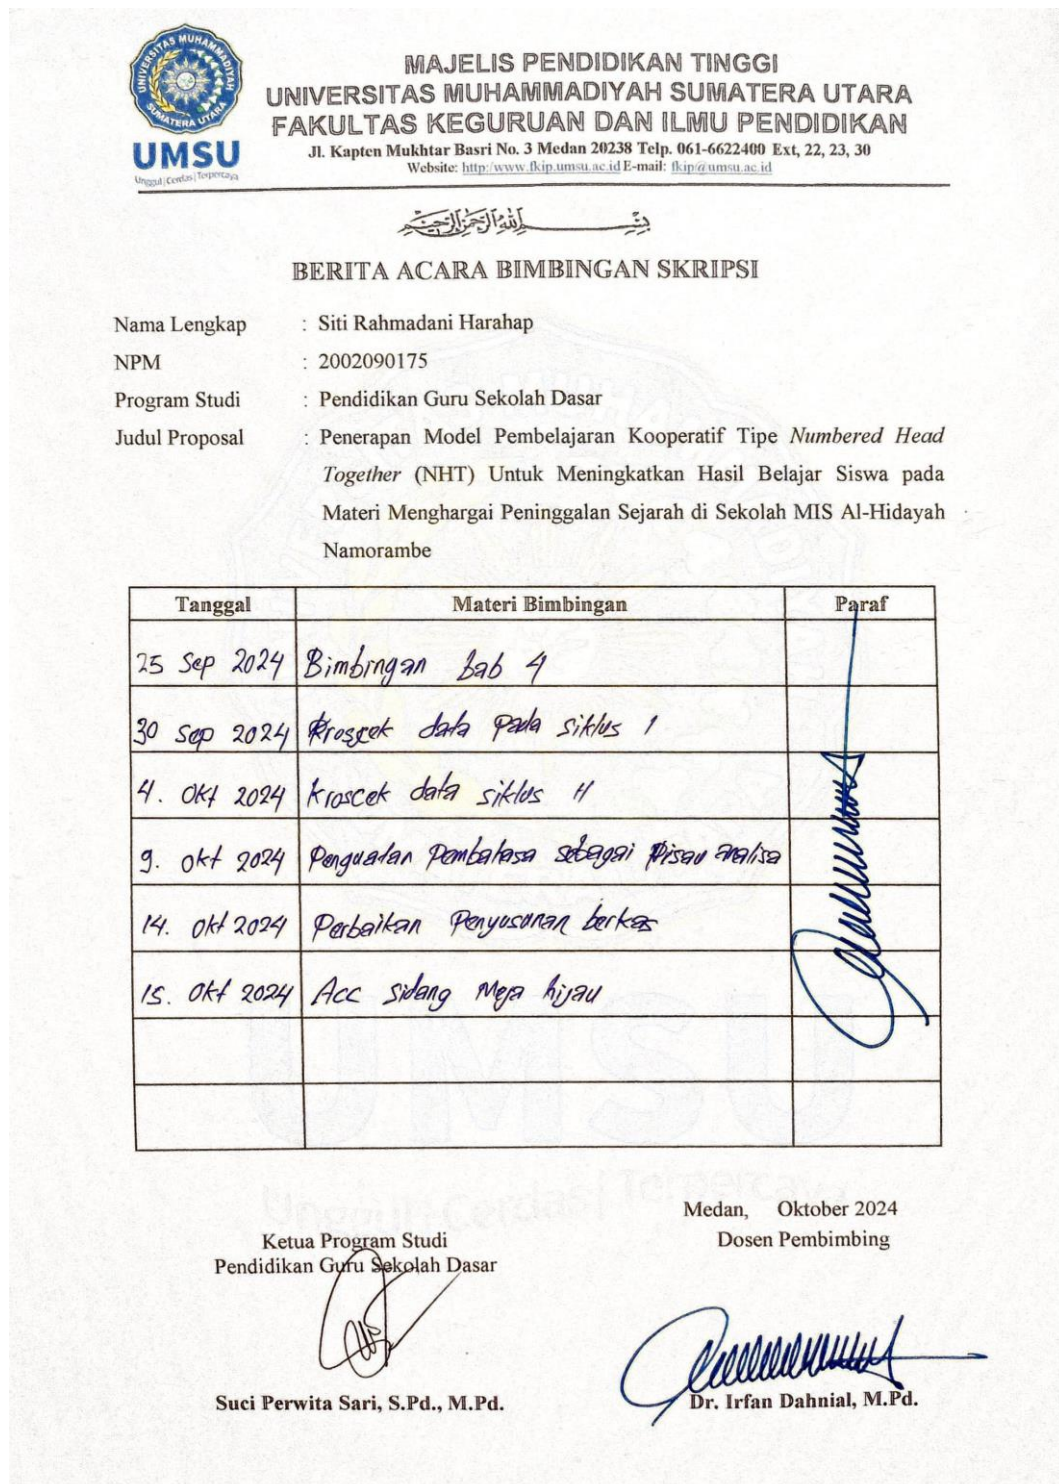 UNIVERSITAS MUHAMMADIYAH
SUMATERA UTARA
UMSU
Unggul | Cerdas | Terpercaya
MAJELIS PENDIDIKAN TINGGI
UNIVERSITAS MUHAMMADIYAH SUMATERA UTARA
FAKULTAS KEGURUAN DAN ILMU PENDIDIKAN
Jl. Kapten Mukhtar Basri No. 3 Medan 20238 Telp. 061-6622400 Ext, 22, 23, 30
Website: http:/www.fkip.umsu.ac.id E-mail: fkip@umsu.ac.id
بسم الله الرحمن الرحيم
BERITA ACARA BIMBINGAN SKRIPSI
Nama Lengkap : Siti Rahmadani Harahap
NPM : 2002090175
Program Studi : Pendidikan Guru Sekolah Dasar
Judul Proposal : Penerapan Model Pembelajaran Kooperatif Tipe Numbered Head
Together (NHT) Untuk Meningkatkan Hasil Belajar Siswa pada
Materi Menghargai Peninggalan Sejarah di Sekolah MIS Al-Hidayah
Namorambe
Tanggal Materi Bimbingan Paraf
25 Sep 2024 Bimbingan bab 4
30 Sep 2024 Kroscek data pada siklus 1
4. Okt 2024 Kroscek data siklus II
9. Okt 2024 Penguatan Pembahasa sebagai Pisau analisa
14. Okt 2024 Perbaikan Penyusunan berkas
15. Okt 2024 Acc sidang Meja hijau
UMSU
Unggul | Cerdas | Terpercaya
Medan, Oktober 2024
Ketua Program Studi Dosen Pembimbing
Pendidikan Guru Sekolah Dasar
Suci Perwita Sari, S.Pd., M.Pd. Dr. Irfan Dahnial, M.Pd.